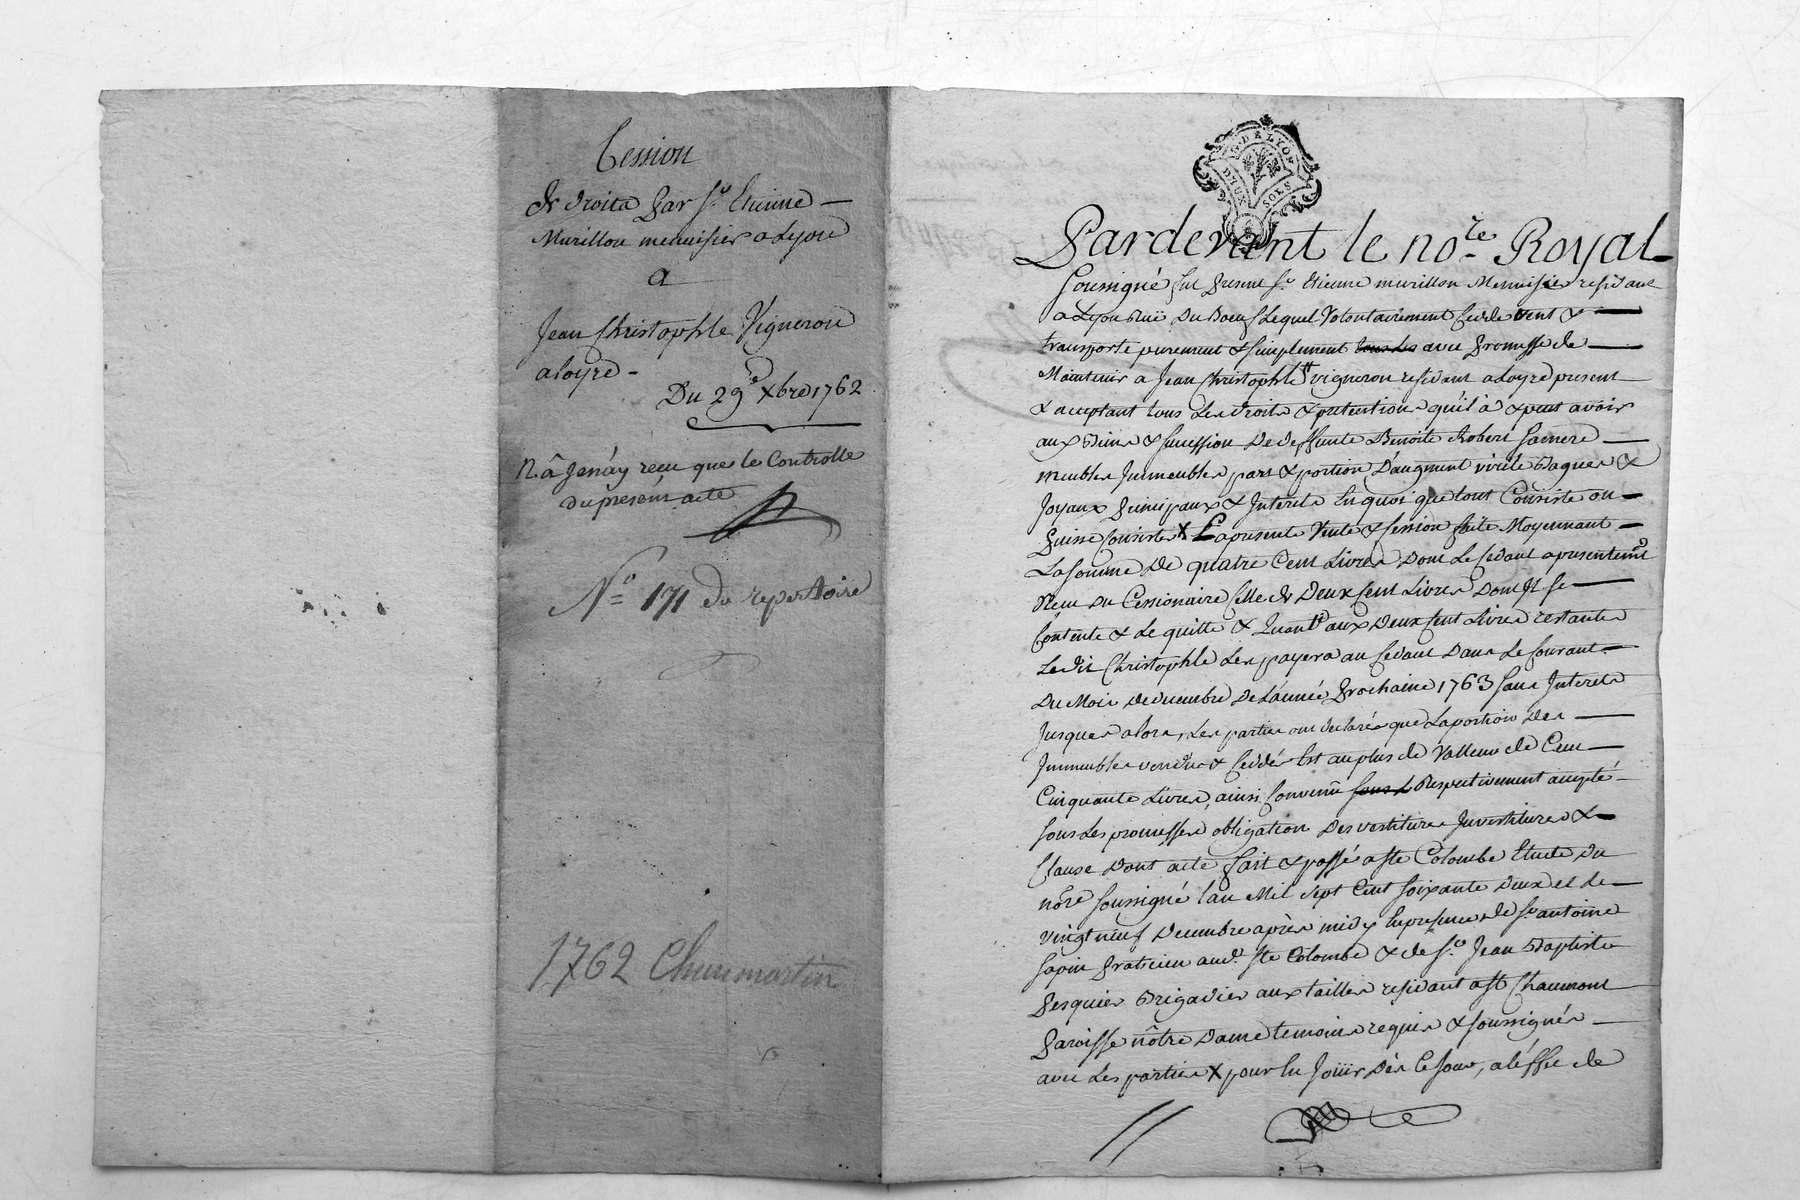 Cession
de droits par Sr. Etienne
Murillon menuisier a Lyon
a
Jean Christophle Vigneron
a loyre
Du 29e Xbre 1762
N. a Je n'ay reçu que le Controlle
du présent acte
No. 171 du repertoire
1762 Chumartin
G. DE LYON
DEUX SOLS
Pardevant le nore. Royal
soussigné fut present Sr. Etienne murillon Menuisier residant
a Lyon Ruë Du Boeuf Lequel Volontairement Cedde vent &
transporte purement & simplement avec promesse de
Maintenir a Jean Christophle vigneron residant a Loyre present
& acceptant tous Les droits & pretentions qu'il à & peut avoir
aux Biens & succession De deffunte Benoite Robert sa mere
meubles Immeubles part & portion D'augment virile Bagues &
Joyaux principaux & Interets En quoi que tout Consiste ou
puisse consister X La presente Vente & Cession faite Moyennant
La somme De quatre Cent Livres Dont Le Cedant a presentemt.
Reçu Du Cessionaire Celle de Deux Cent Livres Dont Il se
Contente & Le quitte & Quant aux Deux Cent Livres restantes
Le dit Christophle Les payera au Cedant Dans Le Courant
Du Mois de decembre De L'année prochaine 1763 sans Interets
Jusques alors, Les parties ont declarés que La portion Des
Immeubles vendus & Ceddés Est au plus de Valleur de Cent
Cinquante Livres, ainsi Convenû Respectivement accepté
sous Les promesses obligation Desvestitures Investitures &
Clause Dont acte fait & passé a ste Colombe Etude du
nore soussigné l'an Mil sept Cent soixante deux et le
vingt neuf Decembre après midy En presence de Sr. antoine
sapin praticien aud. ste Colombe & de Sr. Jean Baptiste
pesquier Brigadier aux tailles residant a st Chaumont
paroisse nôtre Dame temoins requis & soussignés
avec Les parties X pour En Joüir Dès Ce Jour, a l'effet de